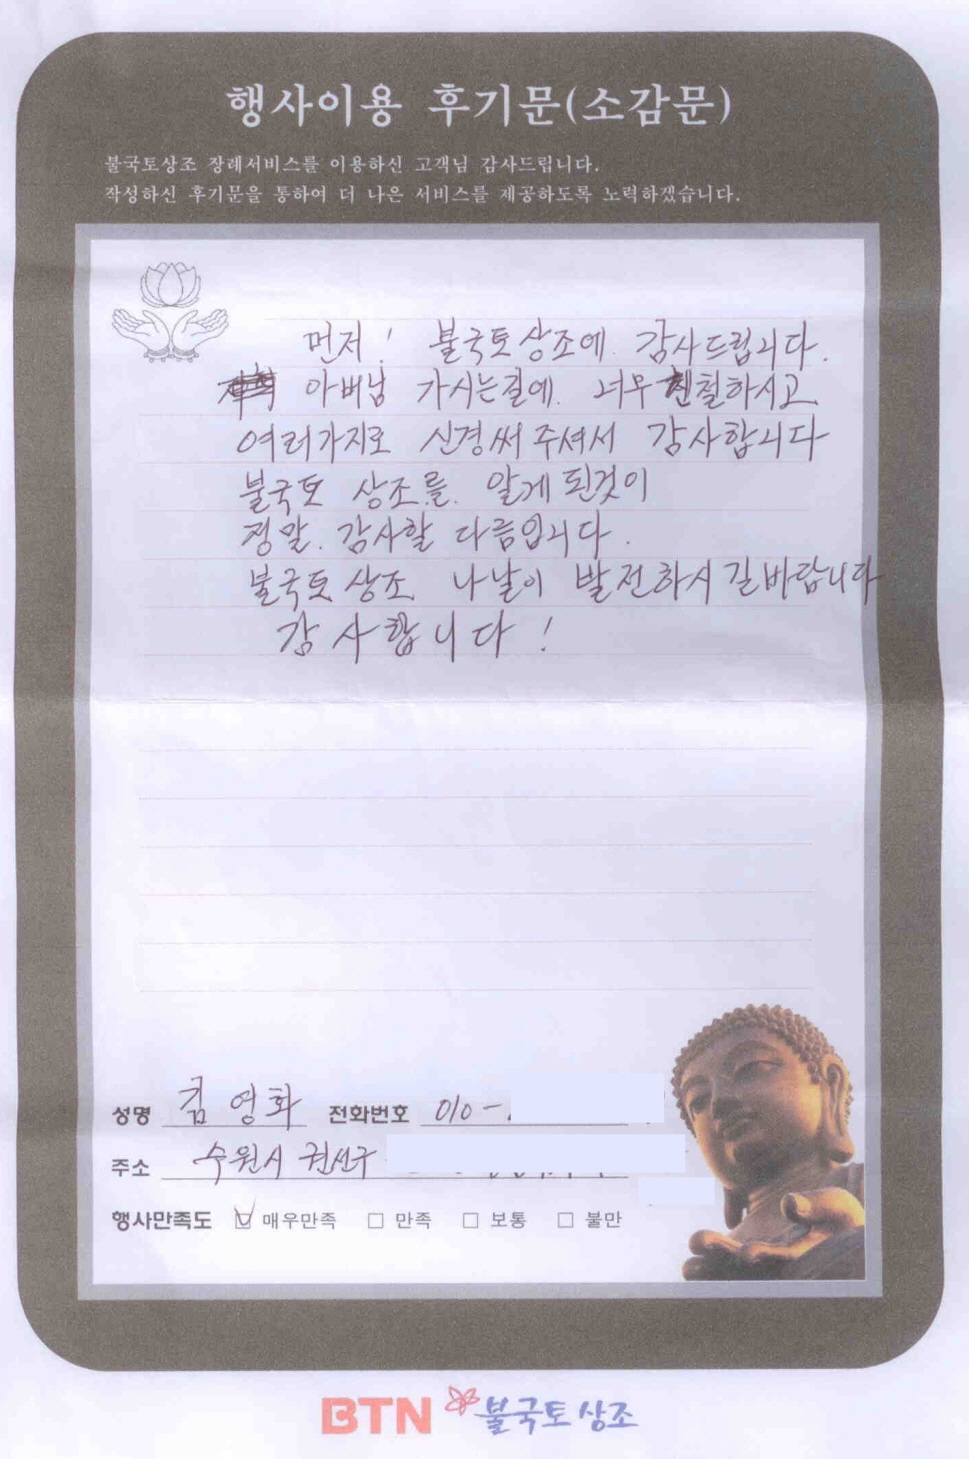 행사이용 후기문(소감문)
불국토상조 장례서비스를 이용하신 고객님 감사드립니다.
작성하신 후기문을 통하여 더 나은 서비스를 제공하도록 노력하겠습니다.
먼저! 불국토상조에 감사드립니다.
아버님 가시는길에. 너무 친철하시고
여러가지로 신경써주셔서 감사합니다
불국토 상조를. 알게된것이
정말. 감사할 다름입니다.
불국토상조 나날이 발전하시길바랍니다
감사합니다!
성명 김영화 전화번호 010-
주소 수원시 권선구
행사만족도 매우만족 만족 보통 불만
BTN 불국토상조